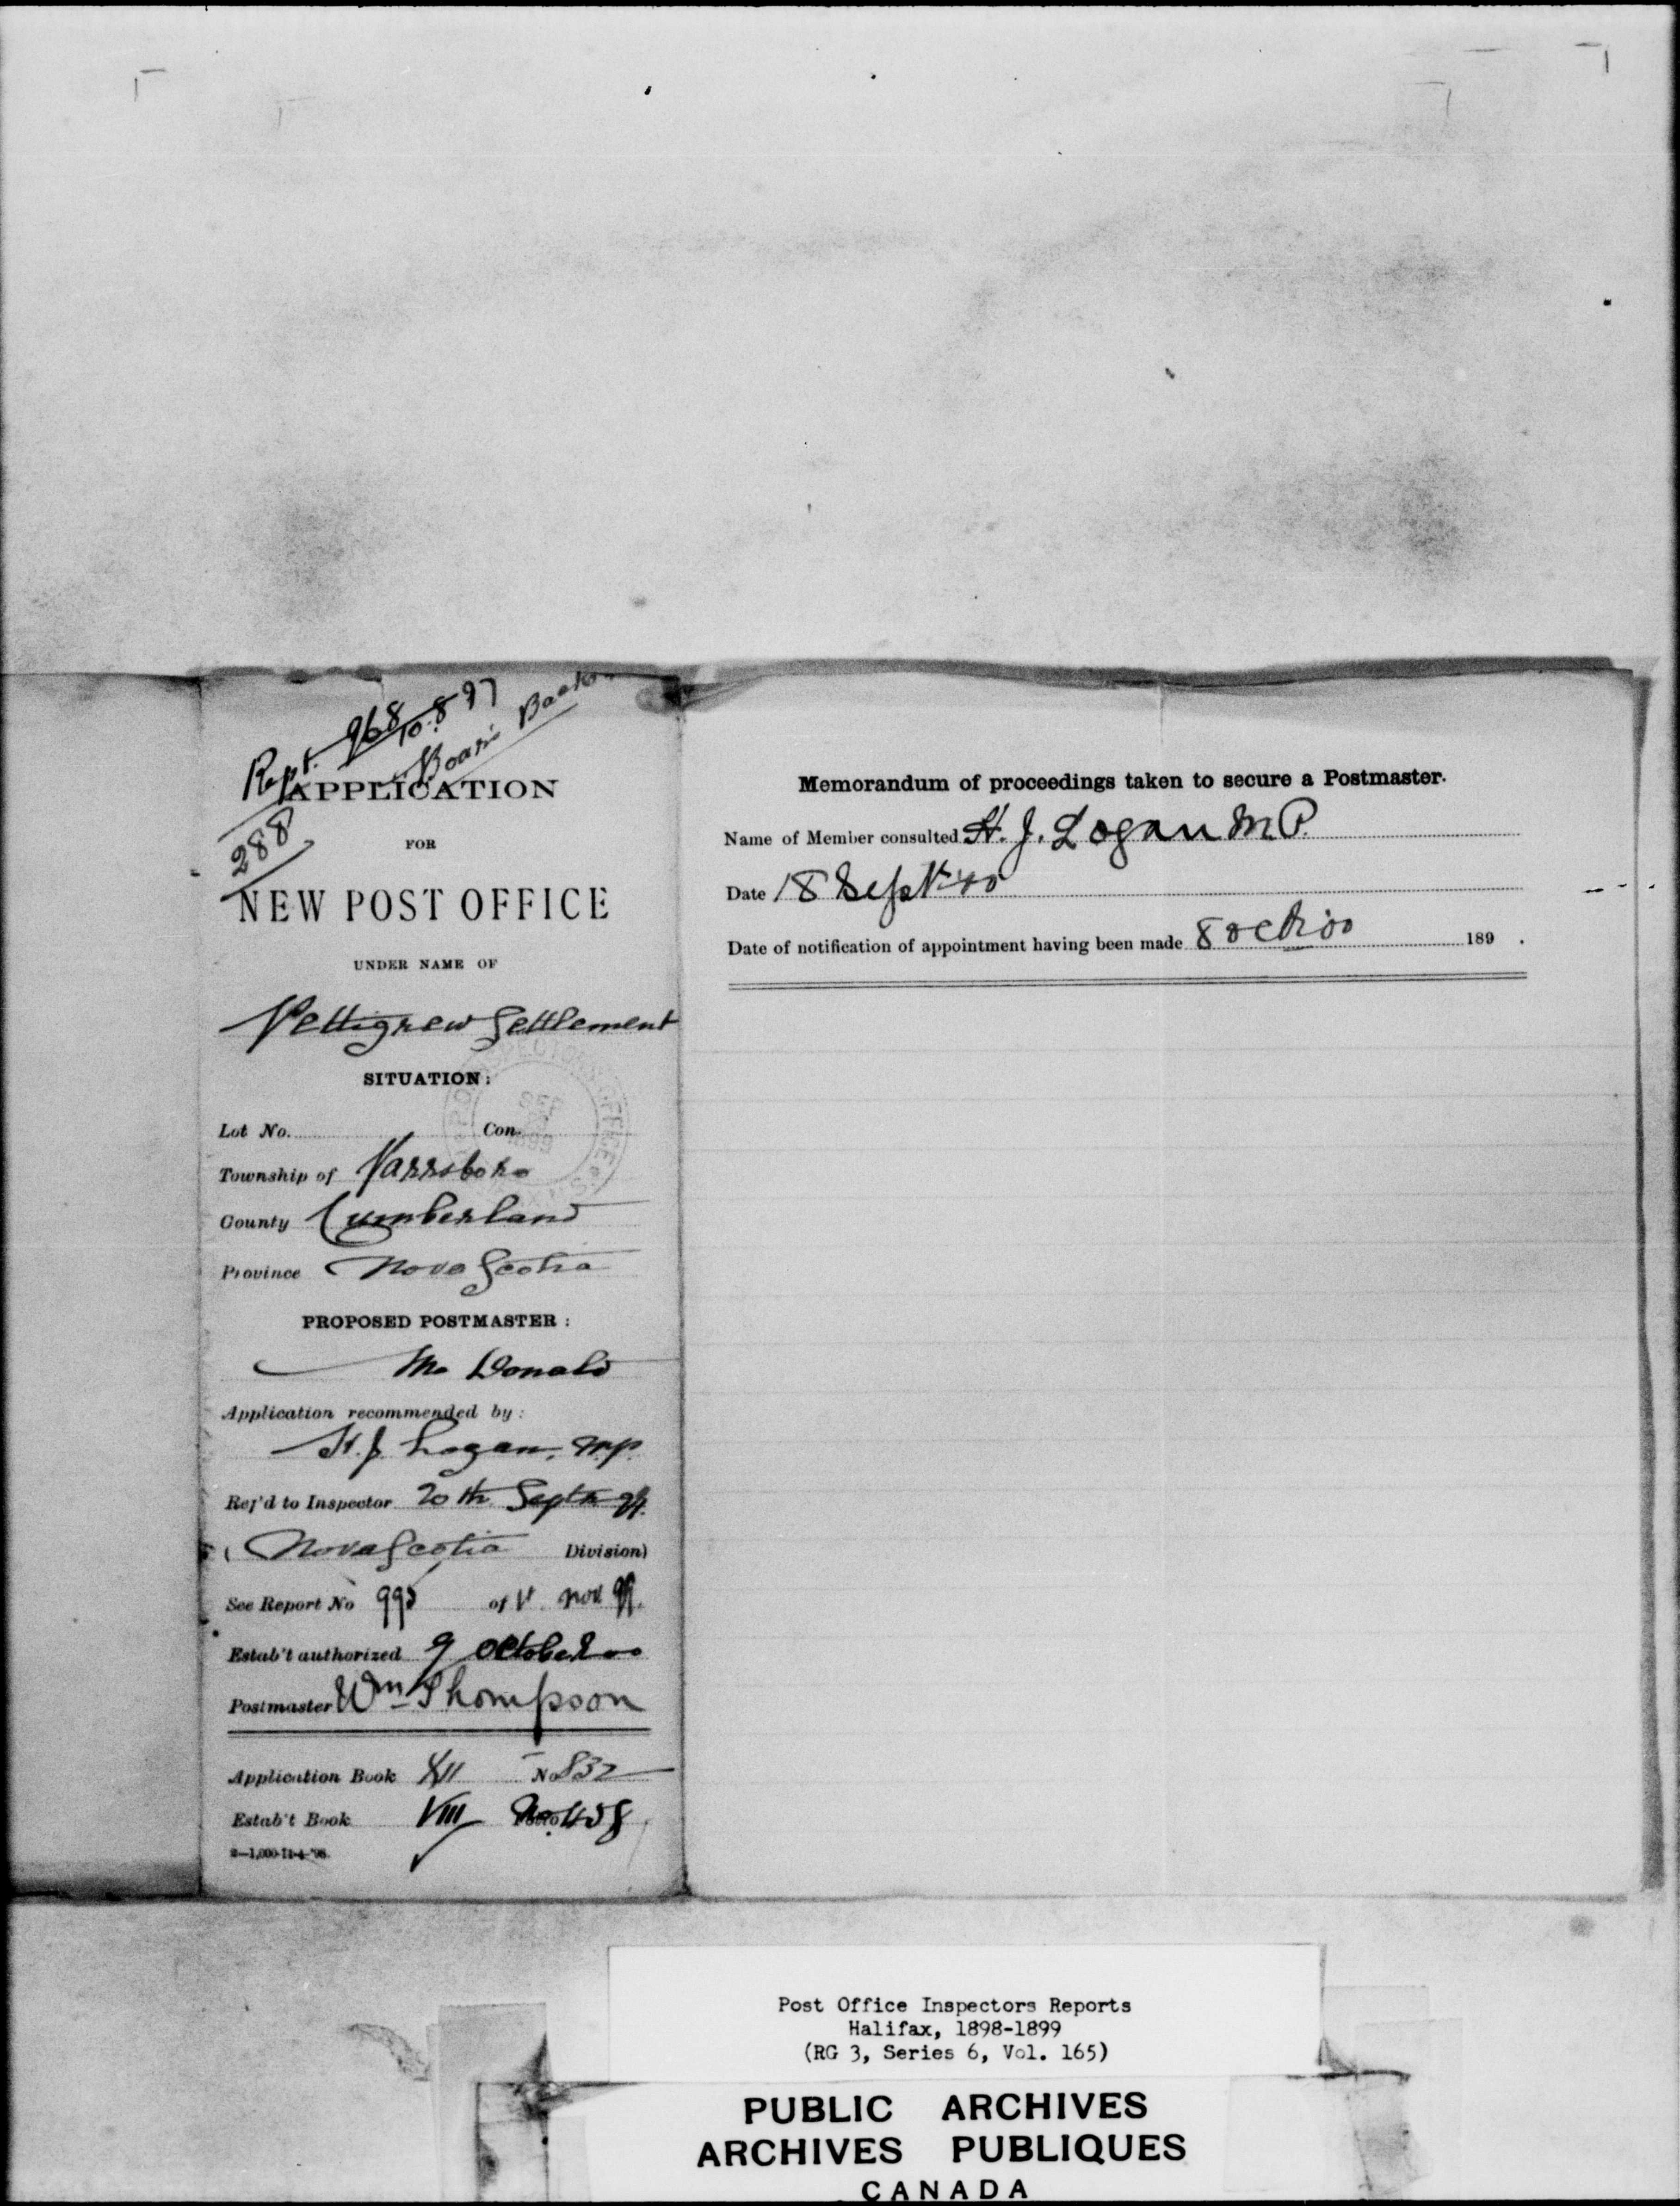 Rept. 968
10.8.97
Boars Back
288
APPLICATION
FOR
NEW POST OFFICE
UNDER NAME OF
Pettigrew Settlement
SITUATION:
Lot No. Con.
Township of Parrsboro
County Cumberland
Province Nova Scotia
PROPOSED POSTMASTER:
McDonald
Application recommended by:
H. J. Logan, M.P.
Ref'd to Inspector 20th Sept 99.
(Nova Scotia Division)
See Report No of 1st Nov. 99.
Estab't authorized 9 October 00
Postmaster Wm Thompson
Application Book XII No 832
Estab't Book VIII
2—1,000-11-4-'98.
Memorandum of proceedings taken to secure a Postmaster.
Name of Member consulted H. J. Logan M.P.
Date 18 Sept 00
Date of notification of appointment having been made 8 Oct. 00 189 .
Post Office Inspectors Reports
Halifax, 1898-1899
(RG 3, Series 6, Vol. 165)
PUBLIC ARCHIVES
ARCHIVES PUBLIQUES
CANADA